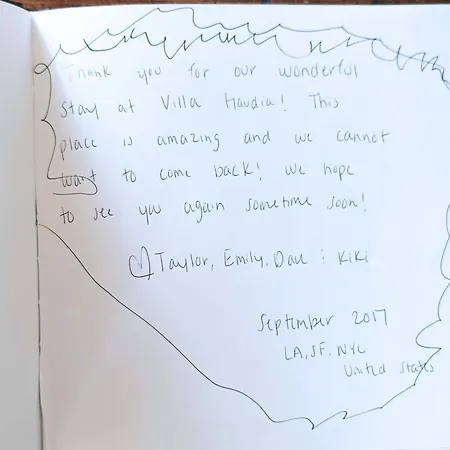 Thank you for our wonderful
stay at Villa Havdia! This
place is amazing and we cannot
want to come back! we hope
to see you again sometime soon!
♡ Taylor, Emily, Dave & Kiki
September 2017
LA, SF, NYC
United States